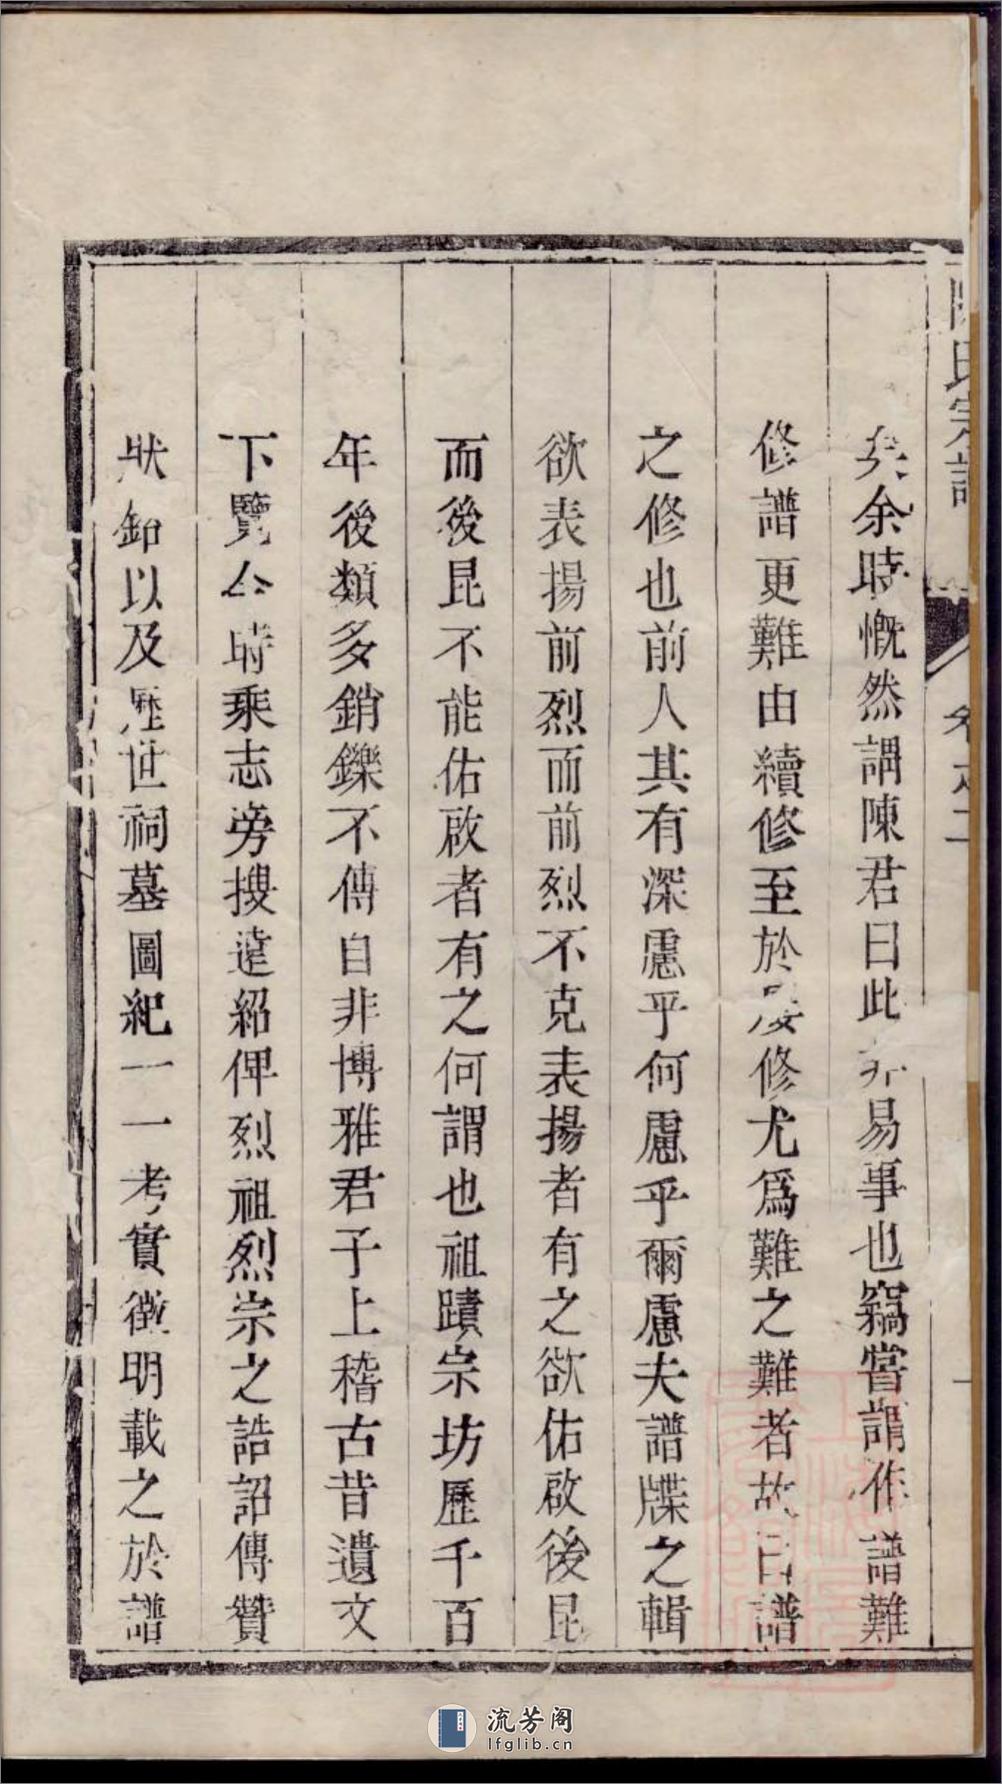 陳氏宗譜
卷之二
一
矣余時慨然謂陳君曰此非易事也竊嘗謂作譜難
修譜更難由續修至於屢修尤爲難之難者故曰譜
之修也前人其有深慮乎何慮乎爾慮夫譜牒之輯
欲表揚前烈而前烈不克表揚者有之欲佑啟後昆
而後昆不能佑啟者有之何謂也祖蹟宗坊歷千百
年後類多銷鑠不傳自非博雅君子上稽古昔遺文
下覽公時乘志旁搜遠紹俾烈祖烈宗之誥詔傳贊
狀銘以及歷世祠墓圖紀一一考實徵明載之於譜
流芳阁
lfglib.cn